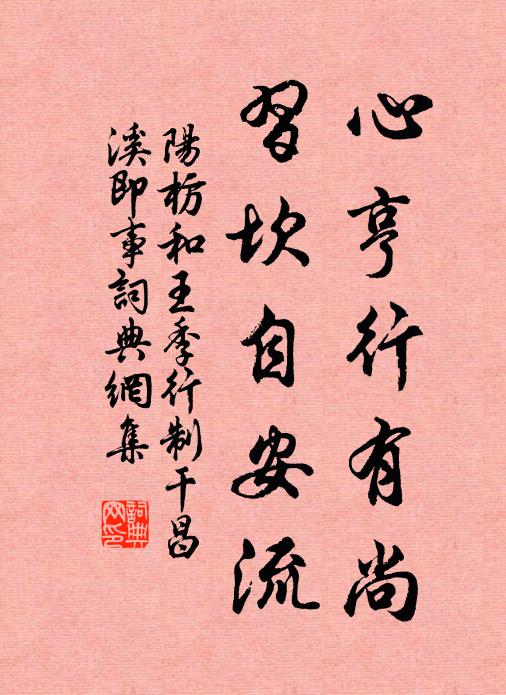 心亨行有尚
習坎自安流
陽枋和王季行制干昌
溪即事詞典網集
詞典
网印